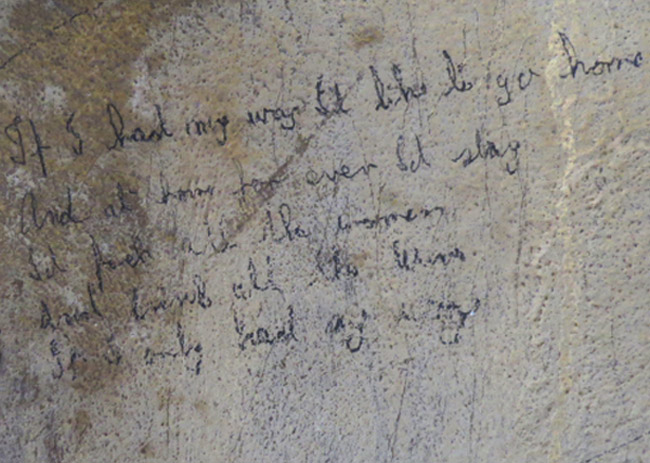 If I had my way Id like to go home
And at home for ever Id stay
Id fuck all the women
And drink all the
If I only had my way